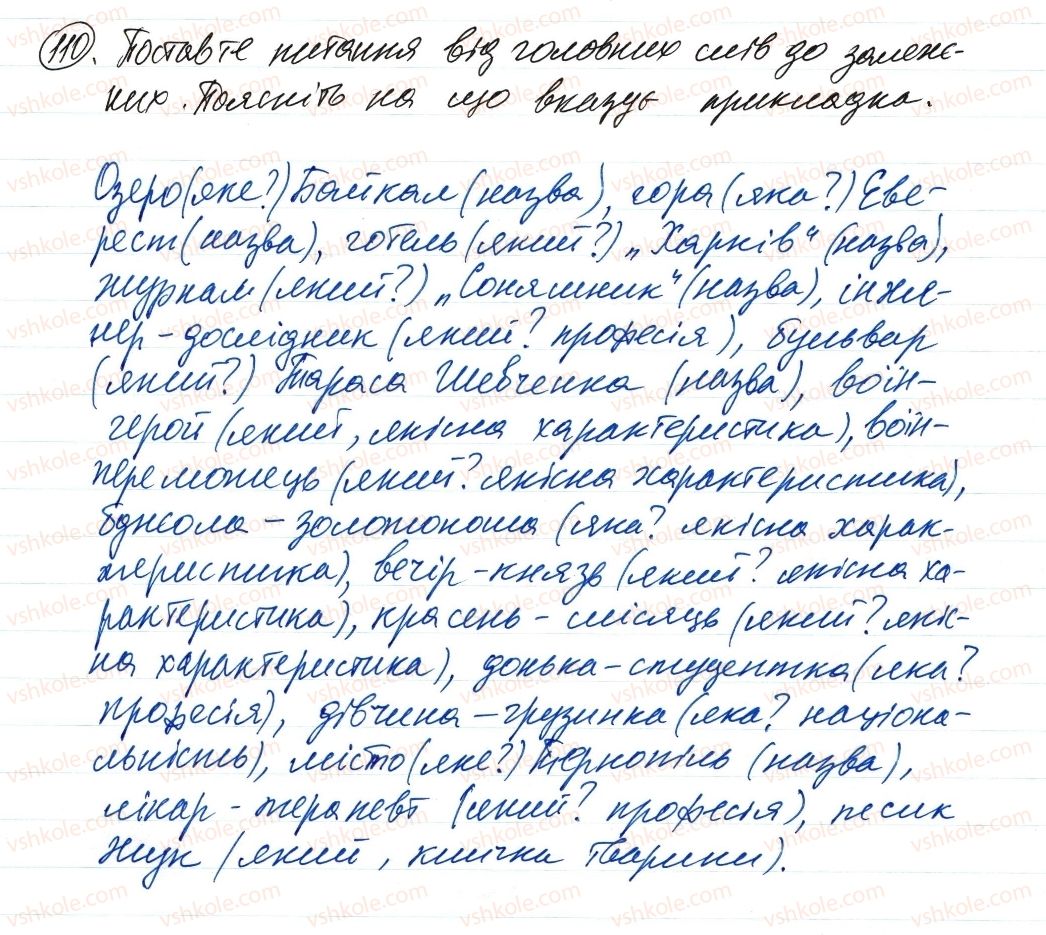 110. Поставте питання від головних слів до залеж-
них. Поясніть на що вказує прикладка.
Озеро (яке?) Байкал (назва), гора (яка?) Еве-
рест (назва), готель (який?) „Харків" (назва),
журнал (який?) „Соняшник" (назва), інже-
нер - дослідник (який? професія), бульвар
(який?) Тараса Шевченка (назва), воїн-
герой (який, якісна характеристика), воїн-
переможець (який? якісна характеристика),
бджола - золотоноша (яка? якісна харак-
теристика), вечір - князь (який? якісна ха-
рактеристика), красень - місяць (який? якіс-
на характеристика), донька - студентка (яка?
професія), дівчина - грузинка (яка? націона-
льність), місто (яке?) Тернопіль (назва),
лікар - терапевт (який? професія), песик
Жук (який, кличка тварини).